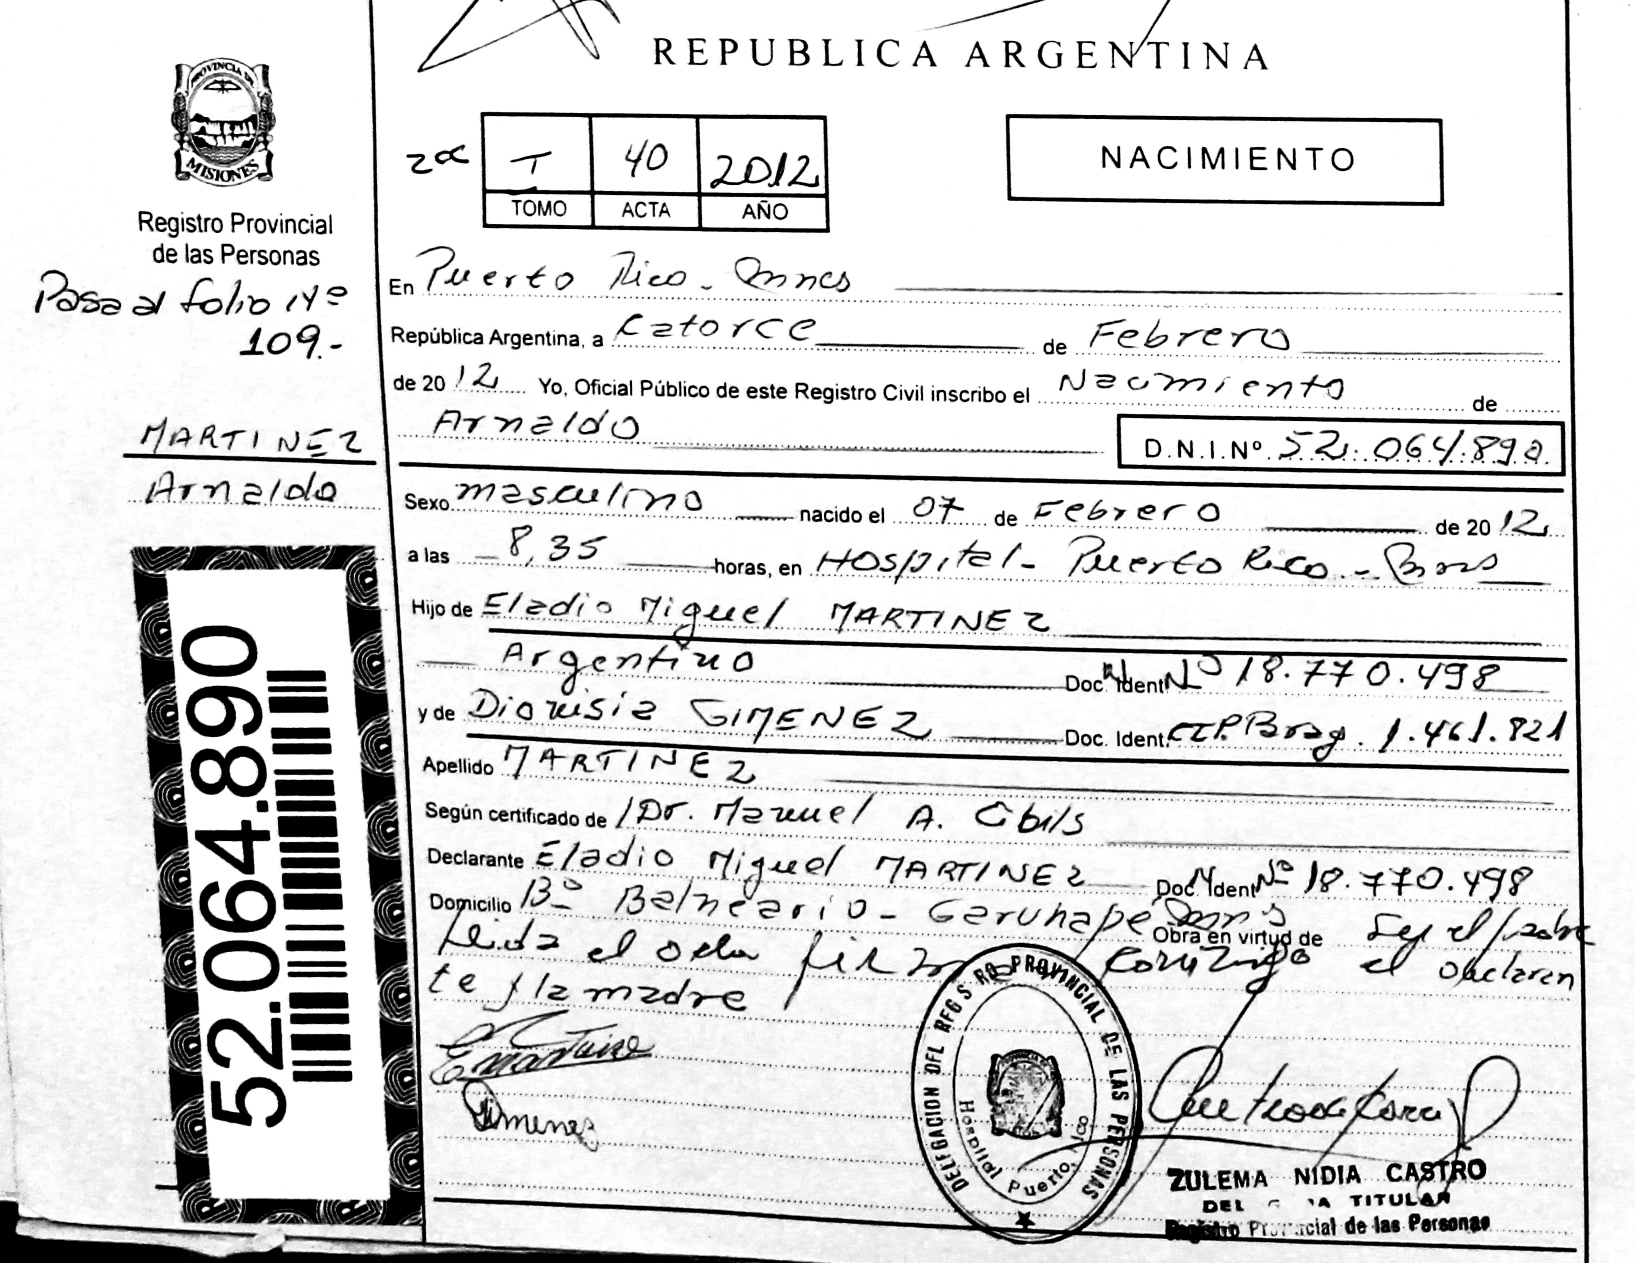 REPUBLICA ARGENTINA
PROVINCIA DE
MISIONES
Registro Provincial
de las Personas
Pasa al folio Nº
109.-
MARTINEZ
Arnaldo
52.064.890
I 40 2012
TOMO ACTA AÑO
NACIMIENTO
En Puerto Rico - Mnes
República Argentina, a Catorce de Febrero
de 2012 Yo, Oficial Público de este Registro Civil inscribo el Nacimiento de
Arnaldo D.N.I.Nº 52.064.890
Sexo masculino nacido el 07 de Febrero de 2012
a las 8,35 horas, en Hospital - Puerto Rico - Mnes
Hijo de Eladio Miguel MARTINEZ
Argentino Doc. Ident. Nº 18.770.498
y de Dionisia GIMENEZ Doc. Ident. 1.461.821
Apellido MARTINEZ
Según certificado de Dr. Manuel A.
Declarante Eladio Miguel MARTINEZ Doc. Ident. Nº 18.770.498
Domicilio Bº Balneario - Garuhape Mnes
Obra en virtud de
Leida el acta firman conmigo el declaran
te y la madre
Gimenez
DELEGACION DEL REGISTRO PROVINCIAL DE LAS PERSONAS
Hospital Puerto Rico
ZULEMA NIDIA CASTRO
TITULAR
Registro Provincial de las Personas